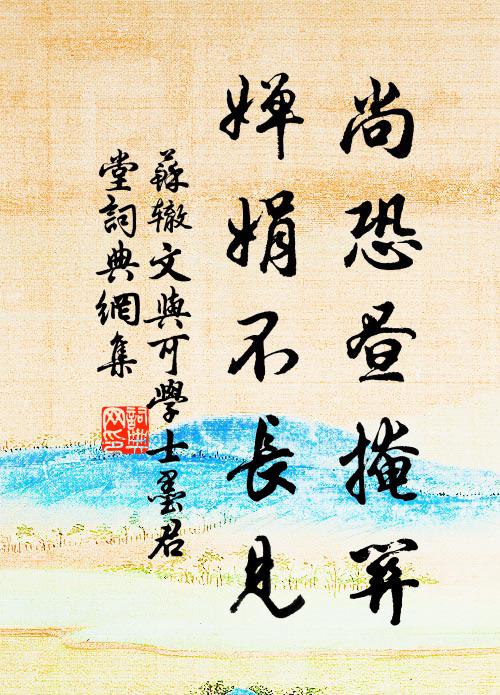 尚恐晝掩關
嬋娟不長見
蘇轍文與可學士墨君
堂詞典網集
詞典網印